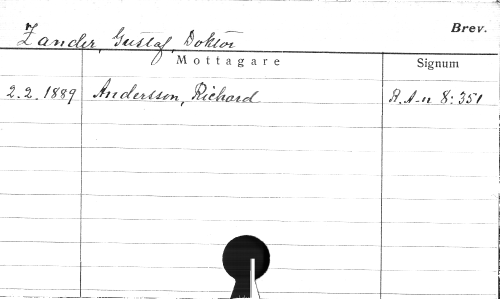 Brev.
Zander, Gustaf, Doktor
Mottagare Signum
2.2.1889 Andersson, Richard R.A-n 8:351